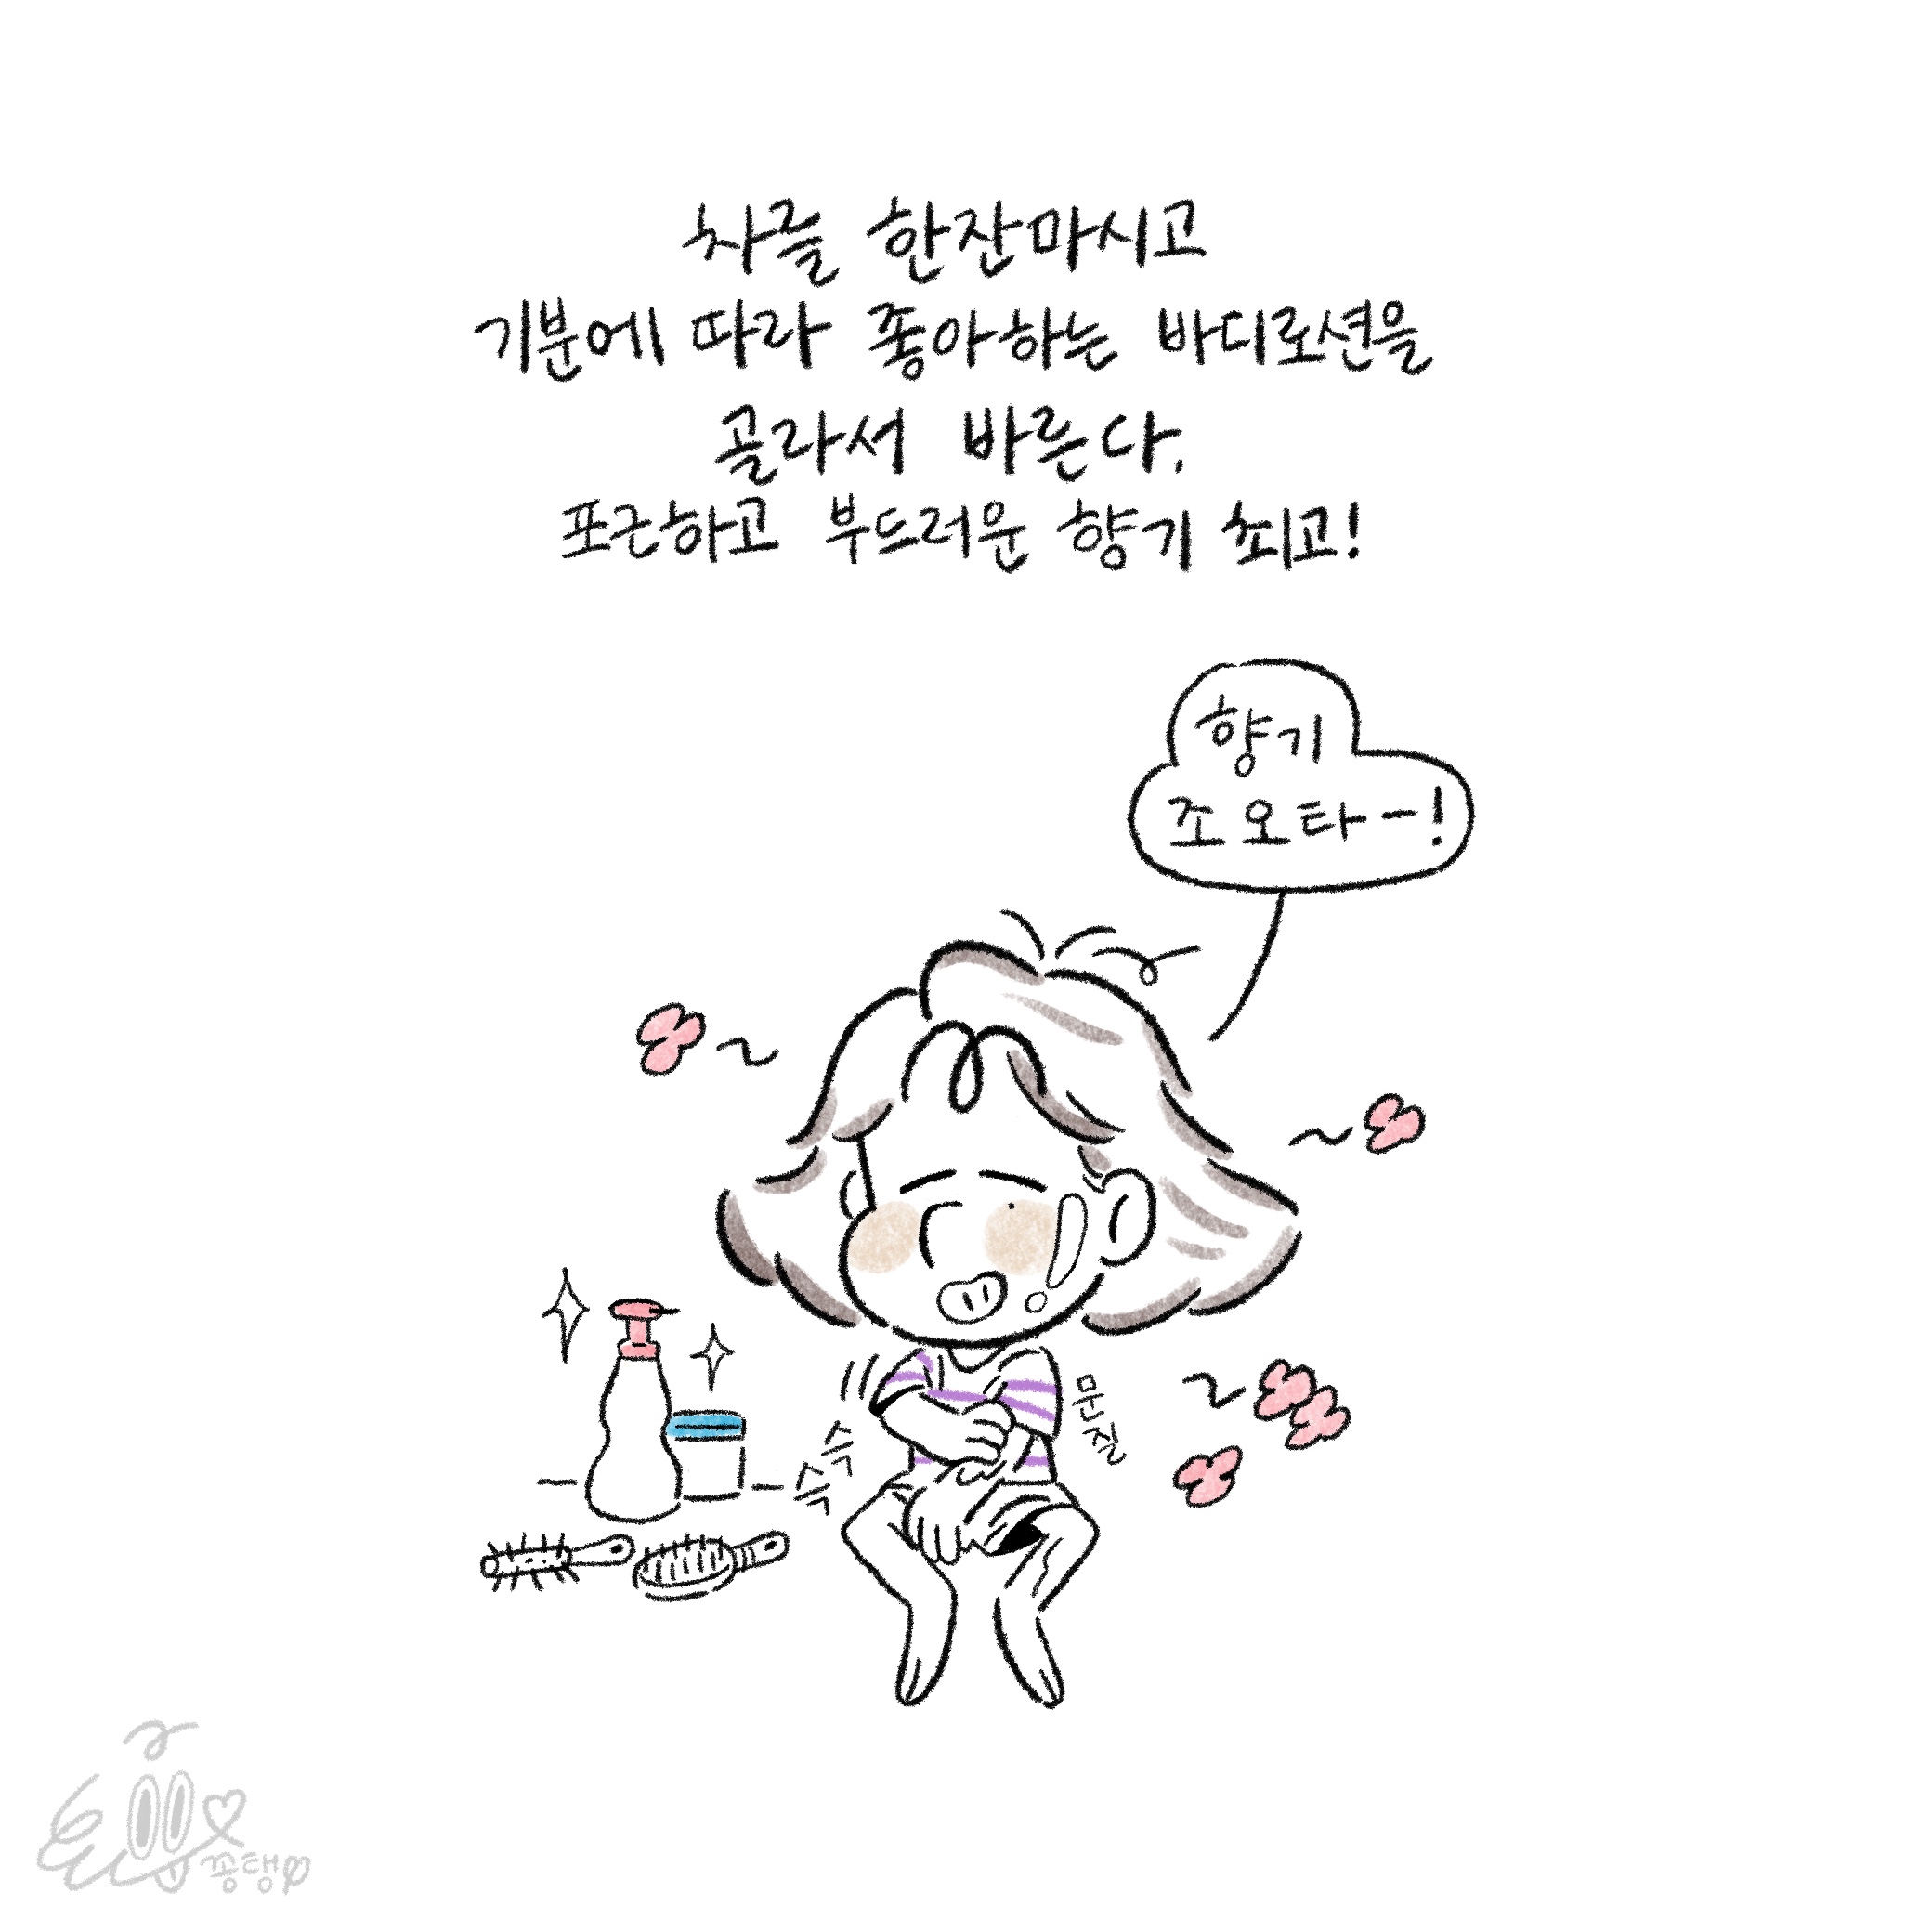 차를 한잔마시고
기분에 따라 좋아하는 바디로션을
골라서 바른다.
포근하고 부드러운 향기 최고!
향기
조오타-!
문질
슥
슥
꽁탱